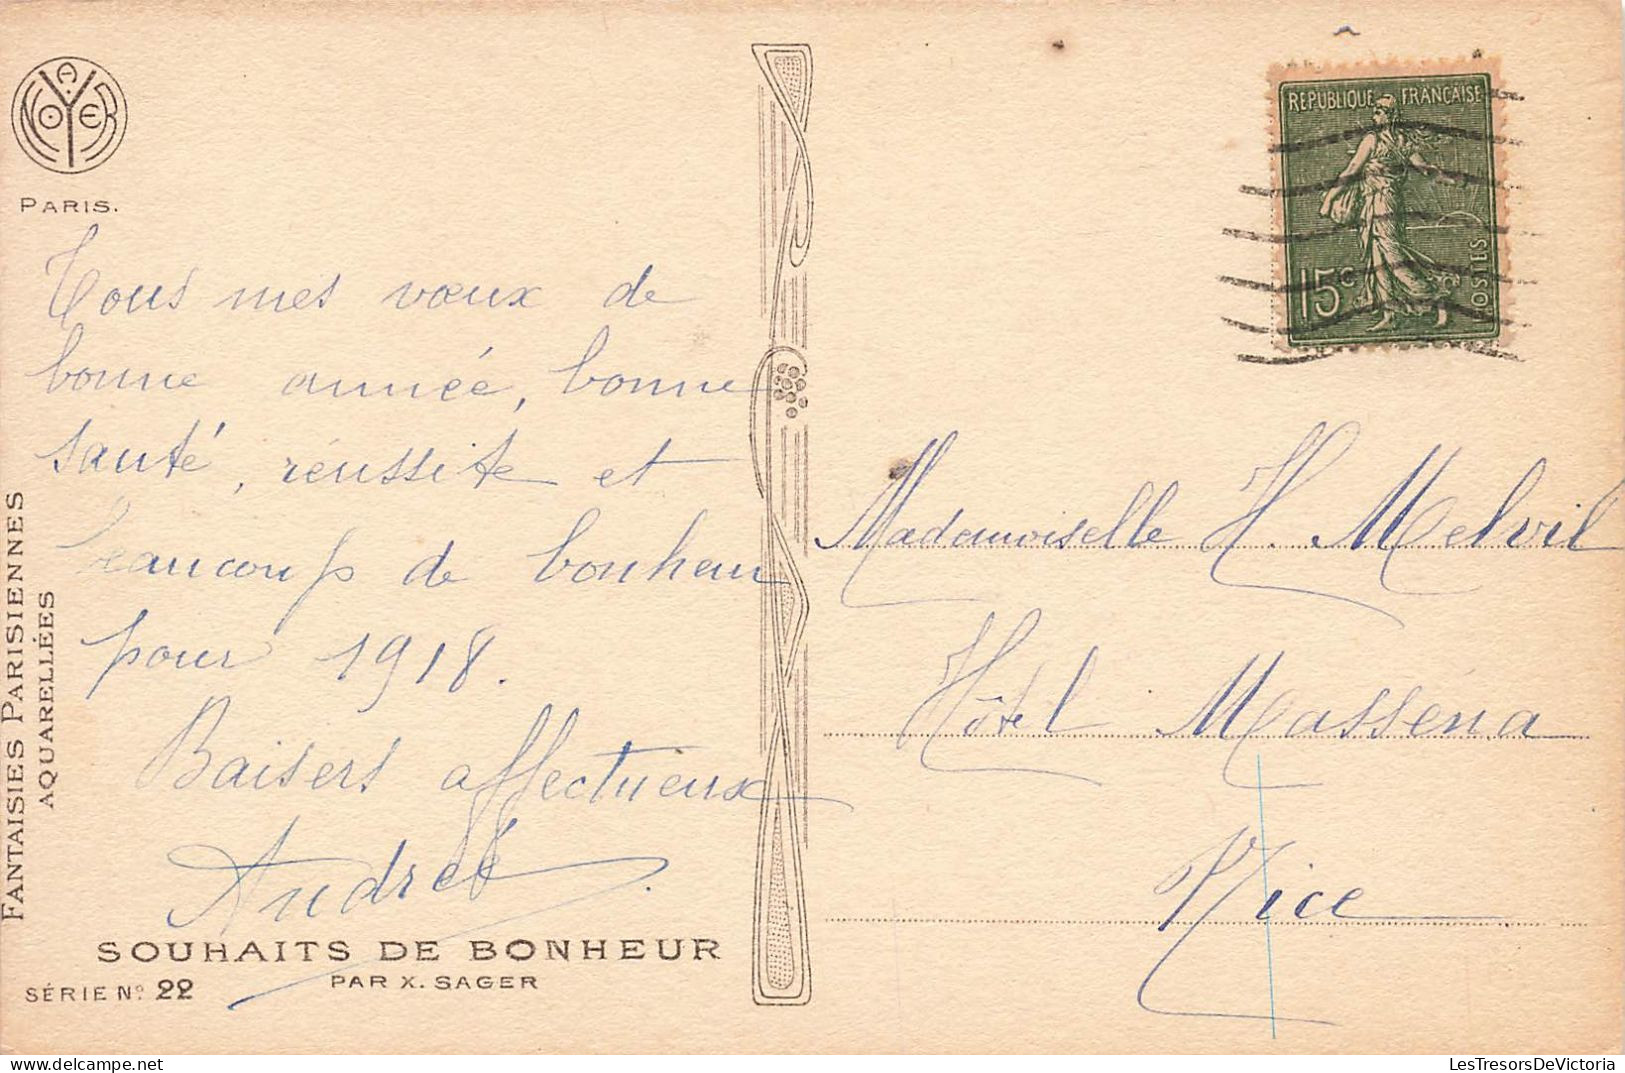 A. NOYER
PARIS.
Tous mes vœux de
bonne année, bonne
santé, réussite et
beaucoup de bonheur
pour 1918.
Baisers affectueux
Andrée
FANTAISIES PARISIENNES
AQUARELLÉES
SOUHAITS DE BONHEUR
PAR X. SAGER
SÉRIE No. 22
REPUBLIQUE FRANÇAISE
15c
POSTES
Mademoiselle H. Melvil
Hôtel Masséna
Nice
LesTresorsDeVictoria